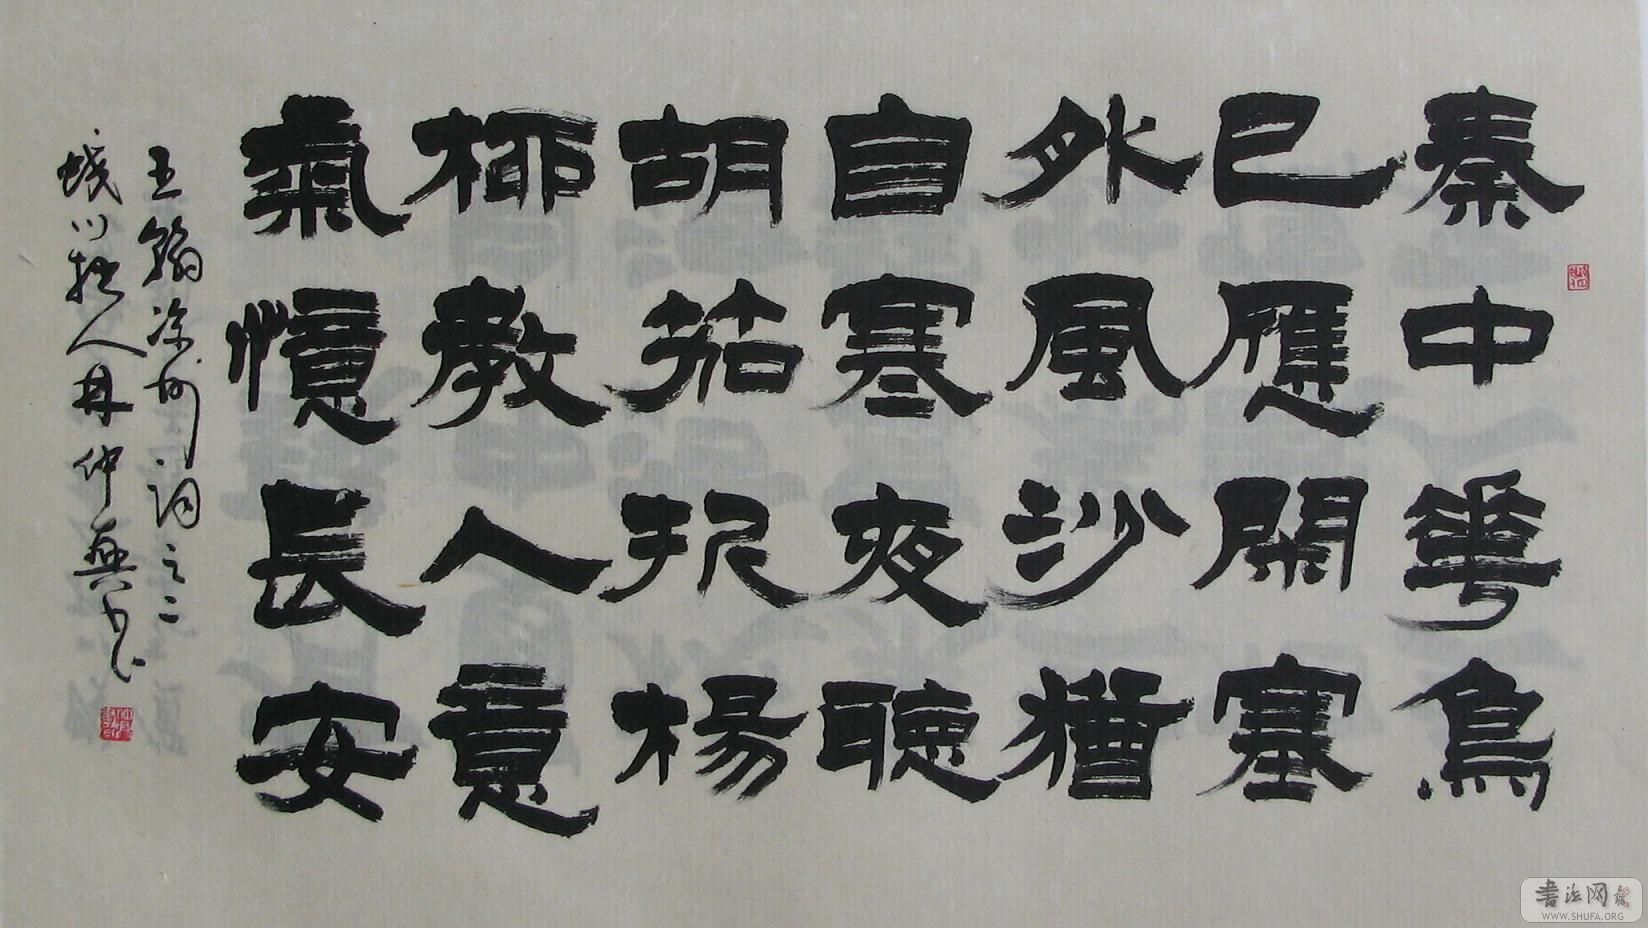 秦中華鳥
已應闌塞
外風沙猶
自寒夜聽
胡笳折楊
柳教人意
氣憶長安
王翰凉州詞之二
川拙人冉仲興
書法网
WWW.SHUFA.ORG